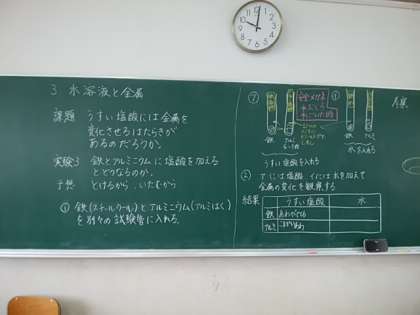 3. 水溶液と金属
課題 うすい塩酸には金属を
変化させるはたらきが
あるのだろうか。
実験3 鉄とアルミニウムに塩酸を加える
とどうなるのか。
予想 とけるから、いたむから
① 鉄(スチールウール)とアルミニウム(アルミはく)
を別々の試験管に入れる。
㋐
鉄 アルミ
うすい塩酸を入れる
㋑
鉄 アルミ
水を入れる
② アには塩酸、イには水を加えて
金属の変化を観察する
結果
うすい塩酸 水
鉄 あわがでる
アルミ